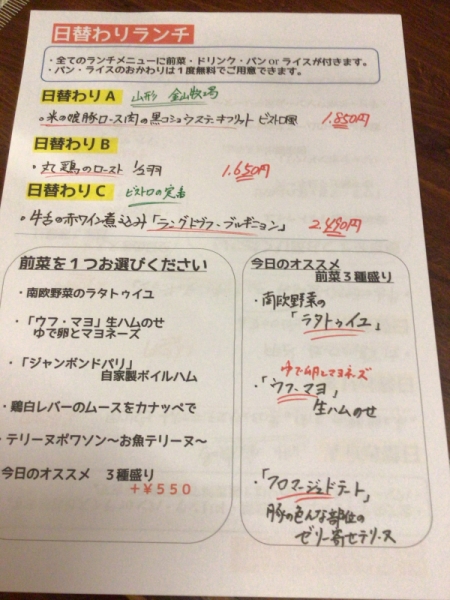 日替わりランチ
・全てのランチメニューに前菜・ドリンク・パン or ライスが付きます。
・パン・ライスのおかわりは１度無料でご用意できます。
日替わり A 山形 金山牧場
・米の娘豚ロース肉の黒コショウステキフリット ビストロ風 1.850円
日替わり B
・丸鶏のロースト 1/2羽 1.650円
日替わり C ビストロの定番
・牛舌の赤ワイン煮込み「ラングドヴフ・ブルギニョン」 2490円
前菜を１つお選びください
・南欧野菜のラタトゥイユ
・「ウフ・マヨ」生ハムのせ
ゆで卵とマヨネーズ
・「ジャンボンドパリ」
自家製ボイルハム
・鶏白レバーのムースをカナッペで
・テリーヌポワソン～お魚テリーヌ～
今日のオススメ　３種盛り
＋￥５５０
今日のオススメ
前菜３種盛り
・南欧野菜の
「ラタトゥイユ」
ゆで卵とマヨネーズ
・「ウフ・マヨ」
生ハムのせ
・「フロマージュドテート」
豚の色んな部位の
ゼリー寄せテリーヌ